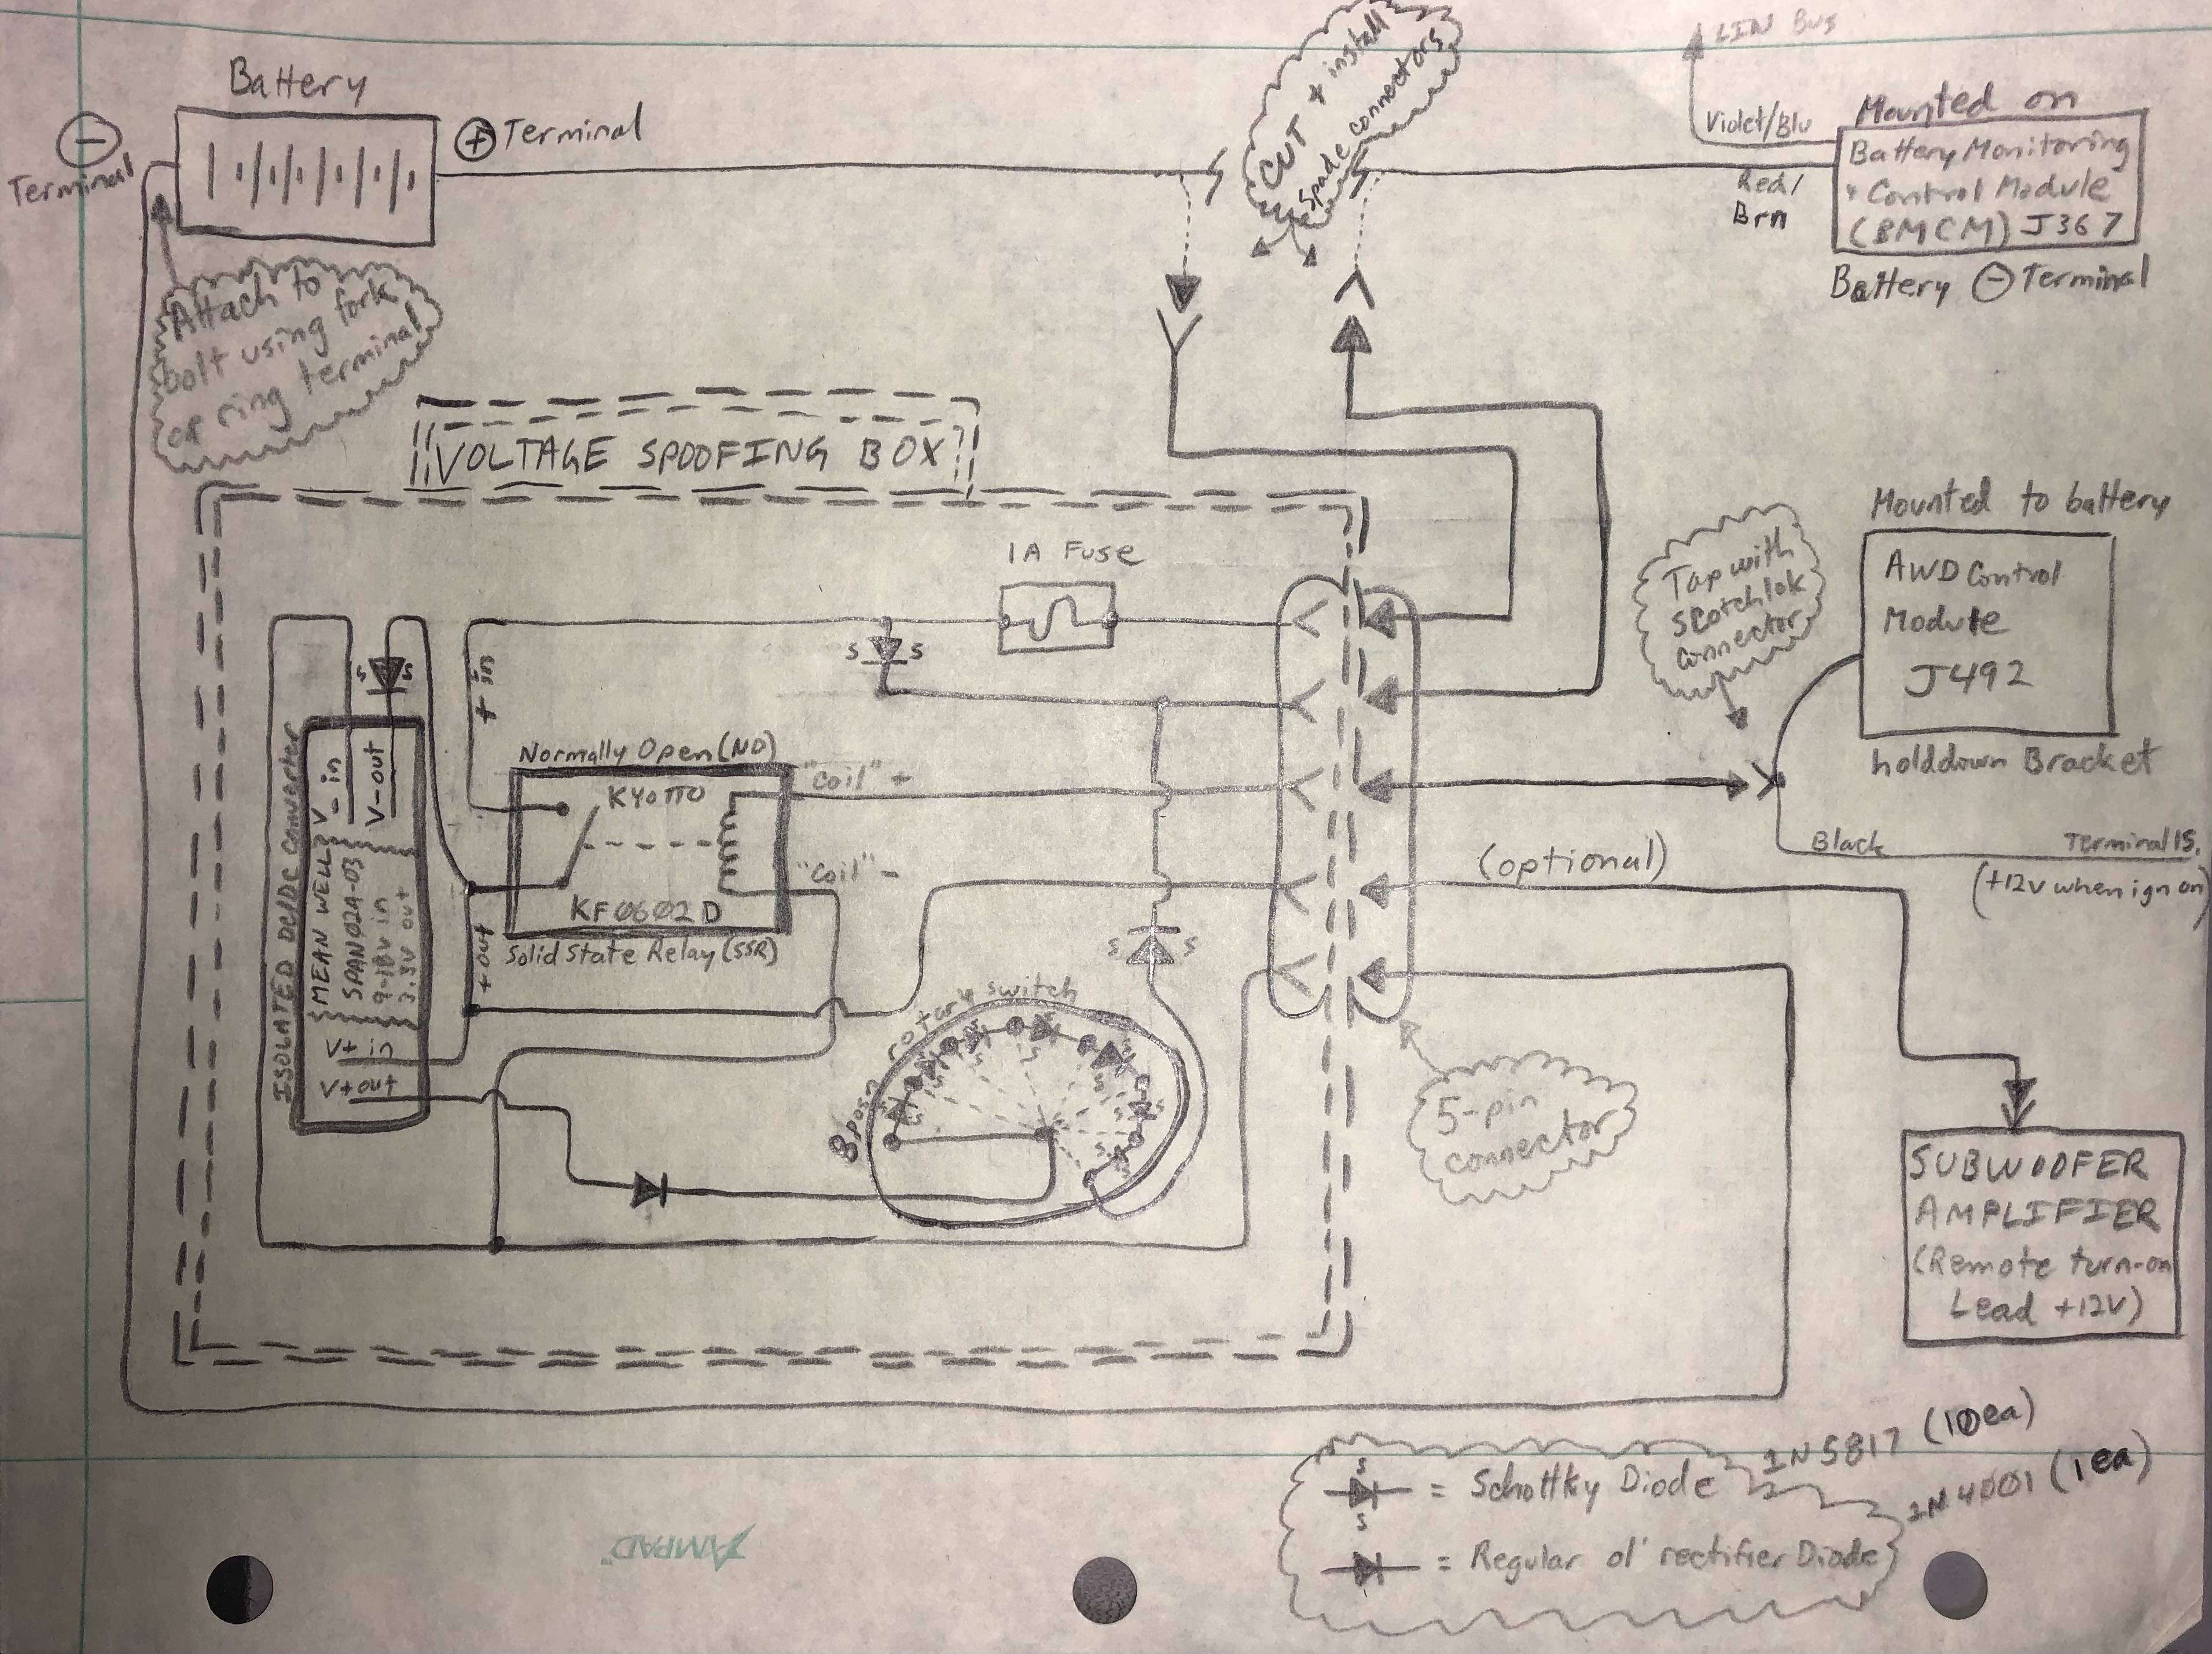 LIN Bus
Battery
⊖
Terminal
⊕ Terminal
CUT + install
spade connectors
Violet/Blu
Red/
Brn
Mounted on
Battery Monitoring
+ Control Module
(BMCM) J367
Battery ⊖ Terminal
Attach to
bolt using fork
or ring terminal
VOLTAGE SPOOFING BOX
1A Fuse
S S
S S
+ in
Mounted to battery
AWD Control
Module
J492
holddown Bracket
Tap with
scotchlok
connector
Black
Terminal 15.
(+12v when ign on)
ISOLATED DC/DC Converter
V-in
V-out
MEAN WELL
SPAN02A-03
9-18V in
3.3V out
V+ in
V+out
Normally Open (NO)
KYOTTO
KF0602D
Solid State Relay (SSR)
"Coil" +
"Coil" -
+ out
(optional)
S S
8posn rotary switch
5-pin
connector
SUBWOOFER
AMPLIFIER
(Remote turn-on
Lead +12V)
S
S
= Schottky Diode 1N5817 (10ea)
= Regular ol' rectifier Diode 1N4001 (1ea)
AMPAD